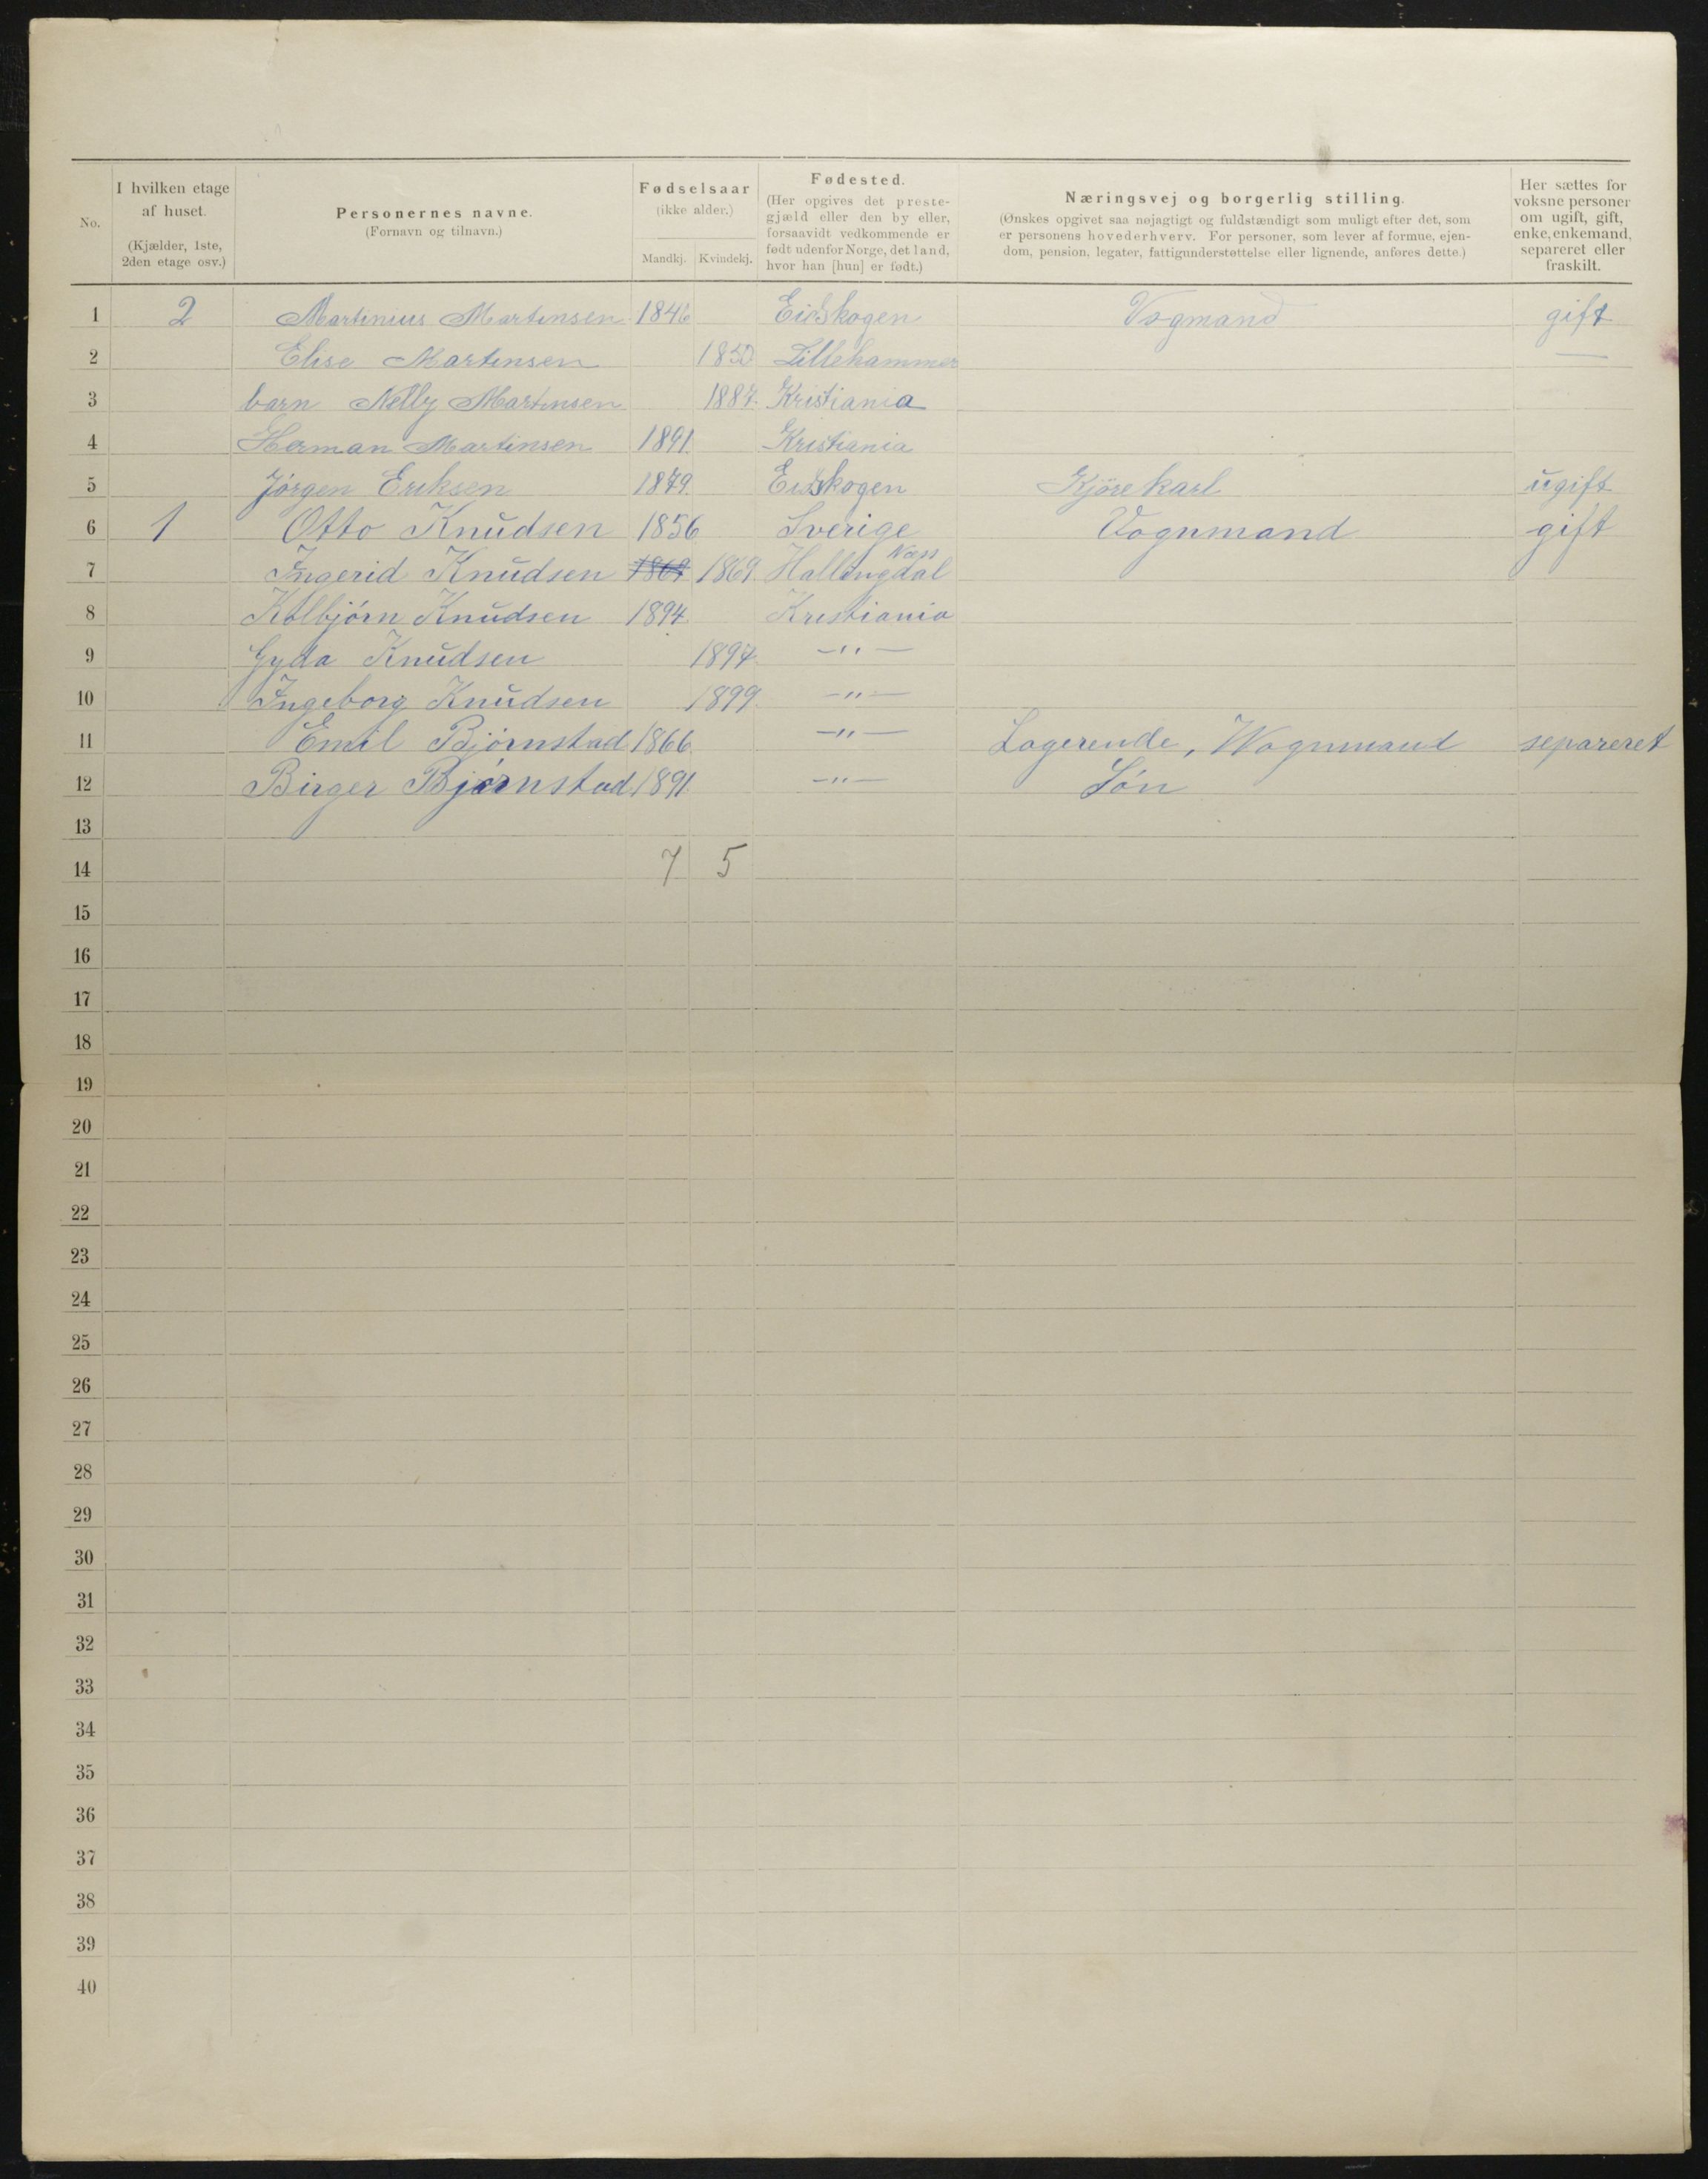 No.
I hvilken etage
af huset.
(Kjælder, 1ste,
2den etage osv.)
Personernes navne.
(Fornavn og tilnavn.)
Fødselsaar
(ikke alder.)
Mandkj. Kvindekj.
Fødested.
(Her opgives det preste-
gjæld eller den by eller,
forsaavidt vedkommende er
født udenfor Norge, det land,
hvor han [hun] er født.)
Næringsvej og borgerlig stilling.
(Ønskes opgivet saa nøjagtigt og fuldstændigt som muligt efter det, som
er personens hovederhverv. For personer, som lever af formue, ejen-
dom, pension, legater, fattigunderstøttelse eller lignende, anføres dette.)
Her sættes for
voksne personer
om ugift, gift,
enke, enkemand,
separeret eller
fraskilt.
1 2 Martinius Martinsen 1846 Eidskogen Vogmand gift
2 Elise Martensen 1850 Lillehammer —
3 barn Nelly Martensen 1887. Kristiania
4 Herman Martinsen 1891. Kristiania
5 Jørgen Eriksen 1879. Eidskogen Kjørekarl ugift
6 1 Otto Knudsen 1856 Sverige Vognmand gift
7 Ingerid Knudsen 1869 1869. Hallingdal Næss
8 Kolbjørn Knudsen 1894. Kristiania
9 Gyda Knudsen 1897. —"—
10 Ingeborg Knudsen 1899. —"—
11 Emil Bjørnstad 1866. —"— Logerende, Wognmand separeret
12 Birger Bjørnstad 1891. —"— Søn
13
14 7 5
15
16
17
18
19
20
21
22
23
24
25
26
27
28
29
30
31
32
33
34
35
36
37
38
39
40